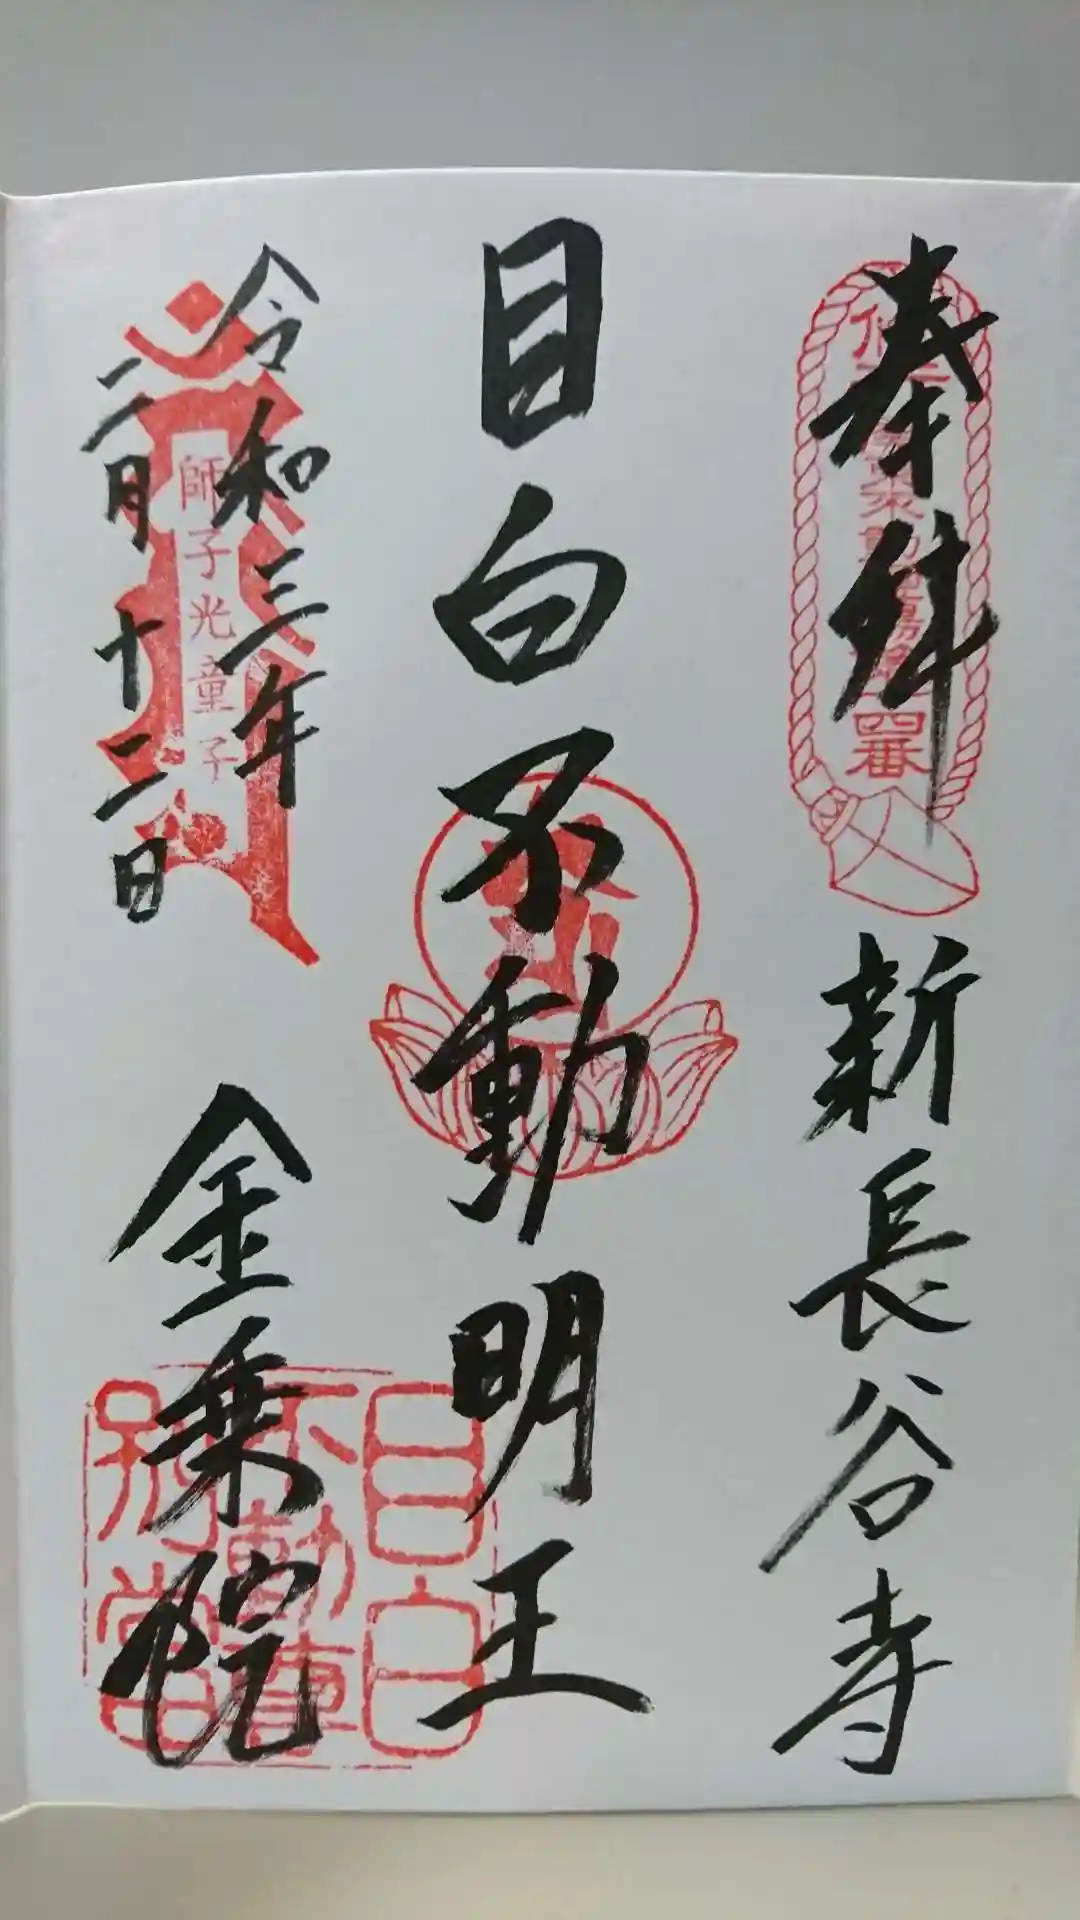 奉拝
新長谷寺
四番
目白不動明王
令和三年
二月十二日
師子光童子
金乗院
目白
不動尊
別當